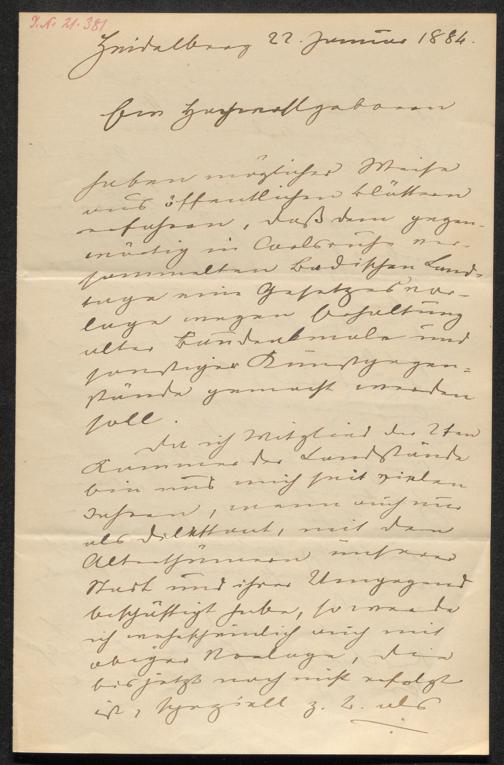 I.N. 21.381
Heidelberg 22. Januar 1884.
Euer Hochwohlgeboren
haben möglicher Weise
aus öffentlichen Blättern
erfahren, daß dem gegen-
wärtig in Carlsruhe ver-
sammelten Badischen Land-
tage eine Gesetzesvor-
lage wegen Erhaltung
alter Baudenkmale und
sonstiger Kunstgegen-
stände gemacht werden
soll.
Da ich Mitglied der 2ten
Kammer der Landstände
bin und mich seit vielen
Jahren, wenn auch nur
als Dilettant, mit den
Alterthümern unserer
Stadt und ihrer Umgegend
beschäftigt habe, so werde
ich wahrscheinlich auch mit
obiger Vorlage, die
bis jetzt noch nicht erfolgt
ist, speziell z. B. als